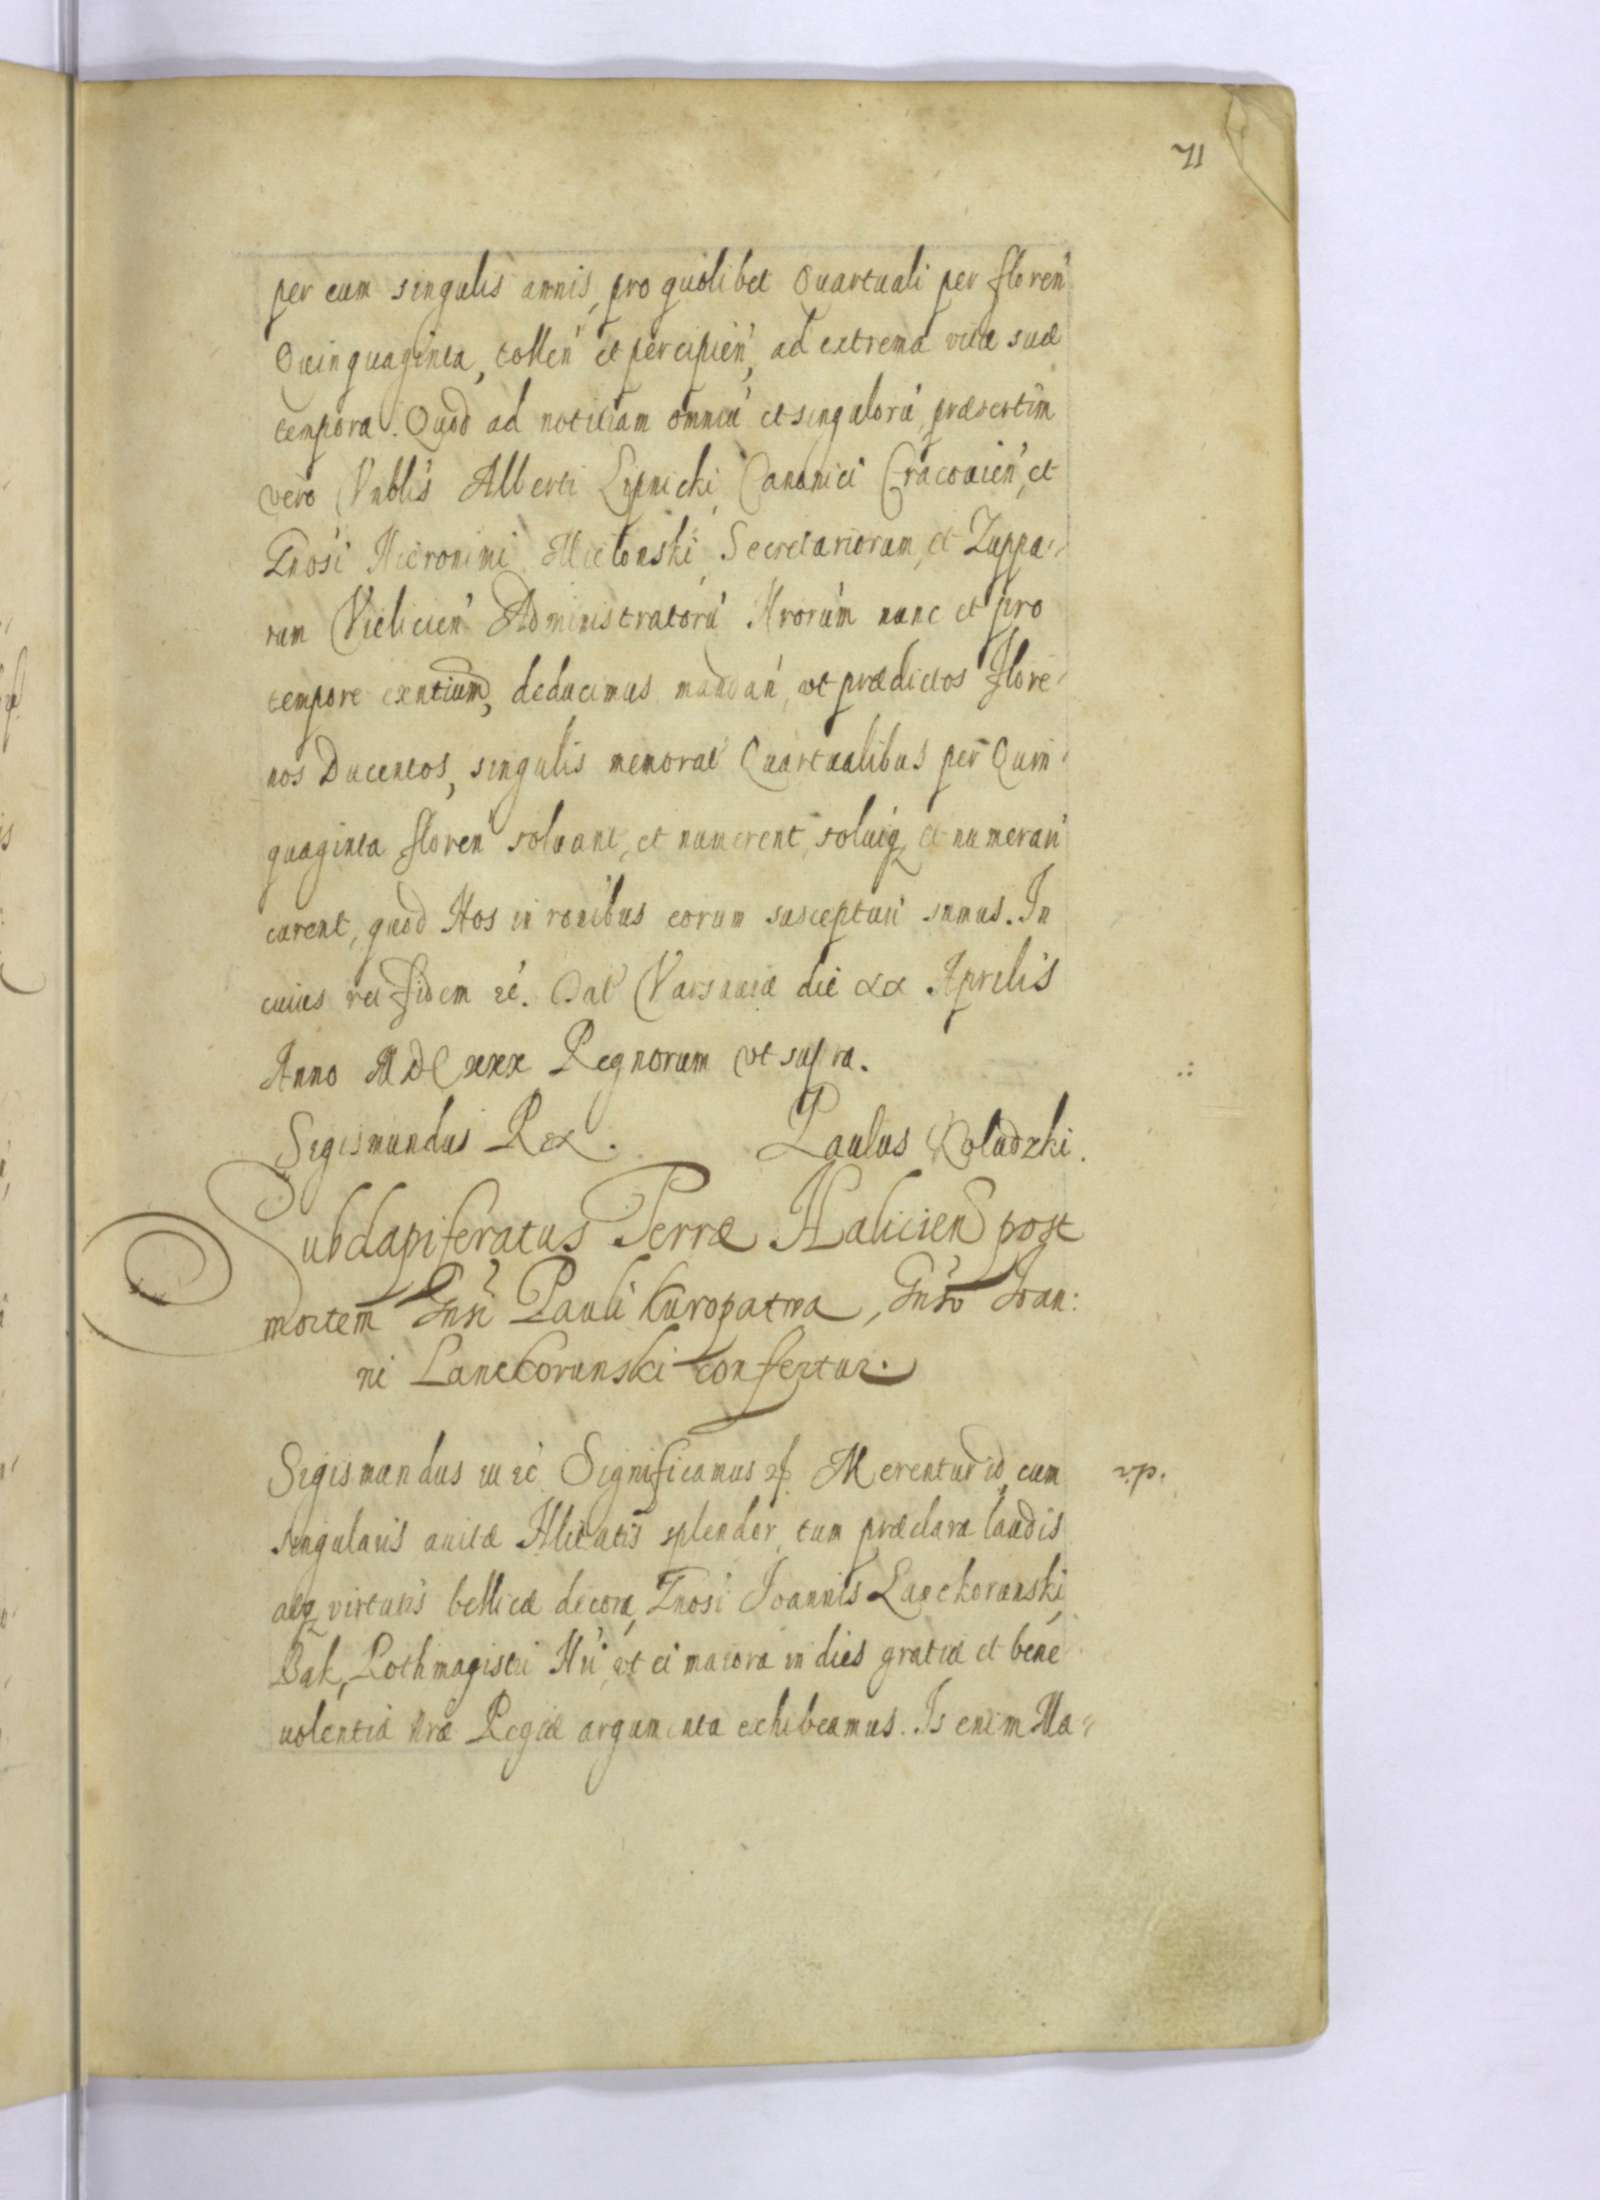 71
per eum singulis annis, pro quolibet Quartuali per floren'
Quinquaginta, tollen' et percipien', ad extrema vitæ suæ
tempora. Quod ad notitiam omniu' et singuloru', præsertim
vero Vnblis Alberti Lipnicki Canonici Cracouien', et
Gnosi Hieronimi Secretariorum, et Zuppa-
rum Vielicien' Administratoru' Nrorum nunc et pro
tempore exntium, deducimus mandan', vt prædictos flore-
nos Ducentos, singulis memorat' Quartualibus per Quin-
quaginta floren' soluant, et numerent, soluiq et numerari
curent, quod Nos in ronibus eorum suscepturi sumus. In
cuius rei fidem ec'. Dat' Varsauiæ die xx Aprilis
Anno MDCxxx Regnorum vt supra.
Sigismundus Rex. Paulus Woludzki.
Subdapiferatus Terræ Halicien post
mortem Gnsi Pauli Kuropatwa, Gnso Joan:
ni Lanckorunski confertur.
Sigismundus iii ec' Significamus ec. Merentur id, cum v.p.
singularis auitæ Nlitatis splendor, tum præclara laudis
atq virtutis bellicæ decora, Gnosi Joannis Lanckorunski,
Bak, Rothmagistri Nri, vt ei maiora in dies gratiæ et bene
uolentiæ nræ Regiæ argumenta exhibeamus. Is enim Ma-